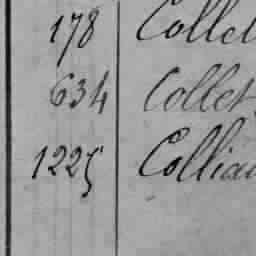 178 Collet
634 Collet
1225 Colliau